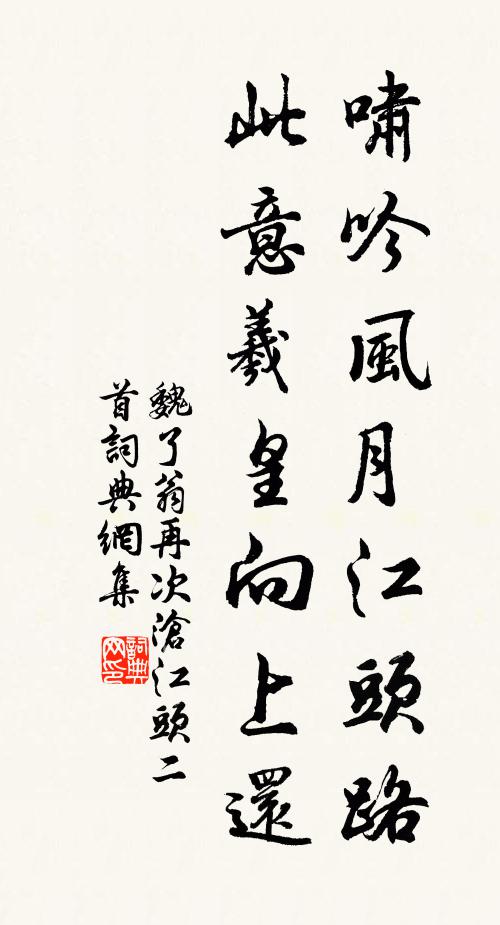 嘯吟風月江頭路
此意羲皇向上還
魏了翁再次滄江頭二
首詞典網集
詞典网印